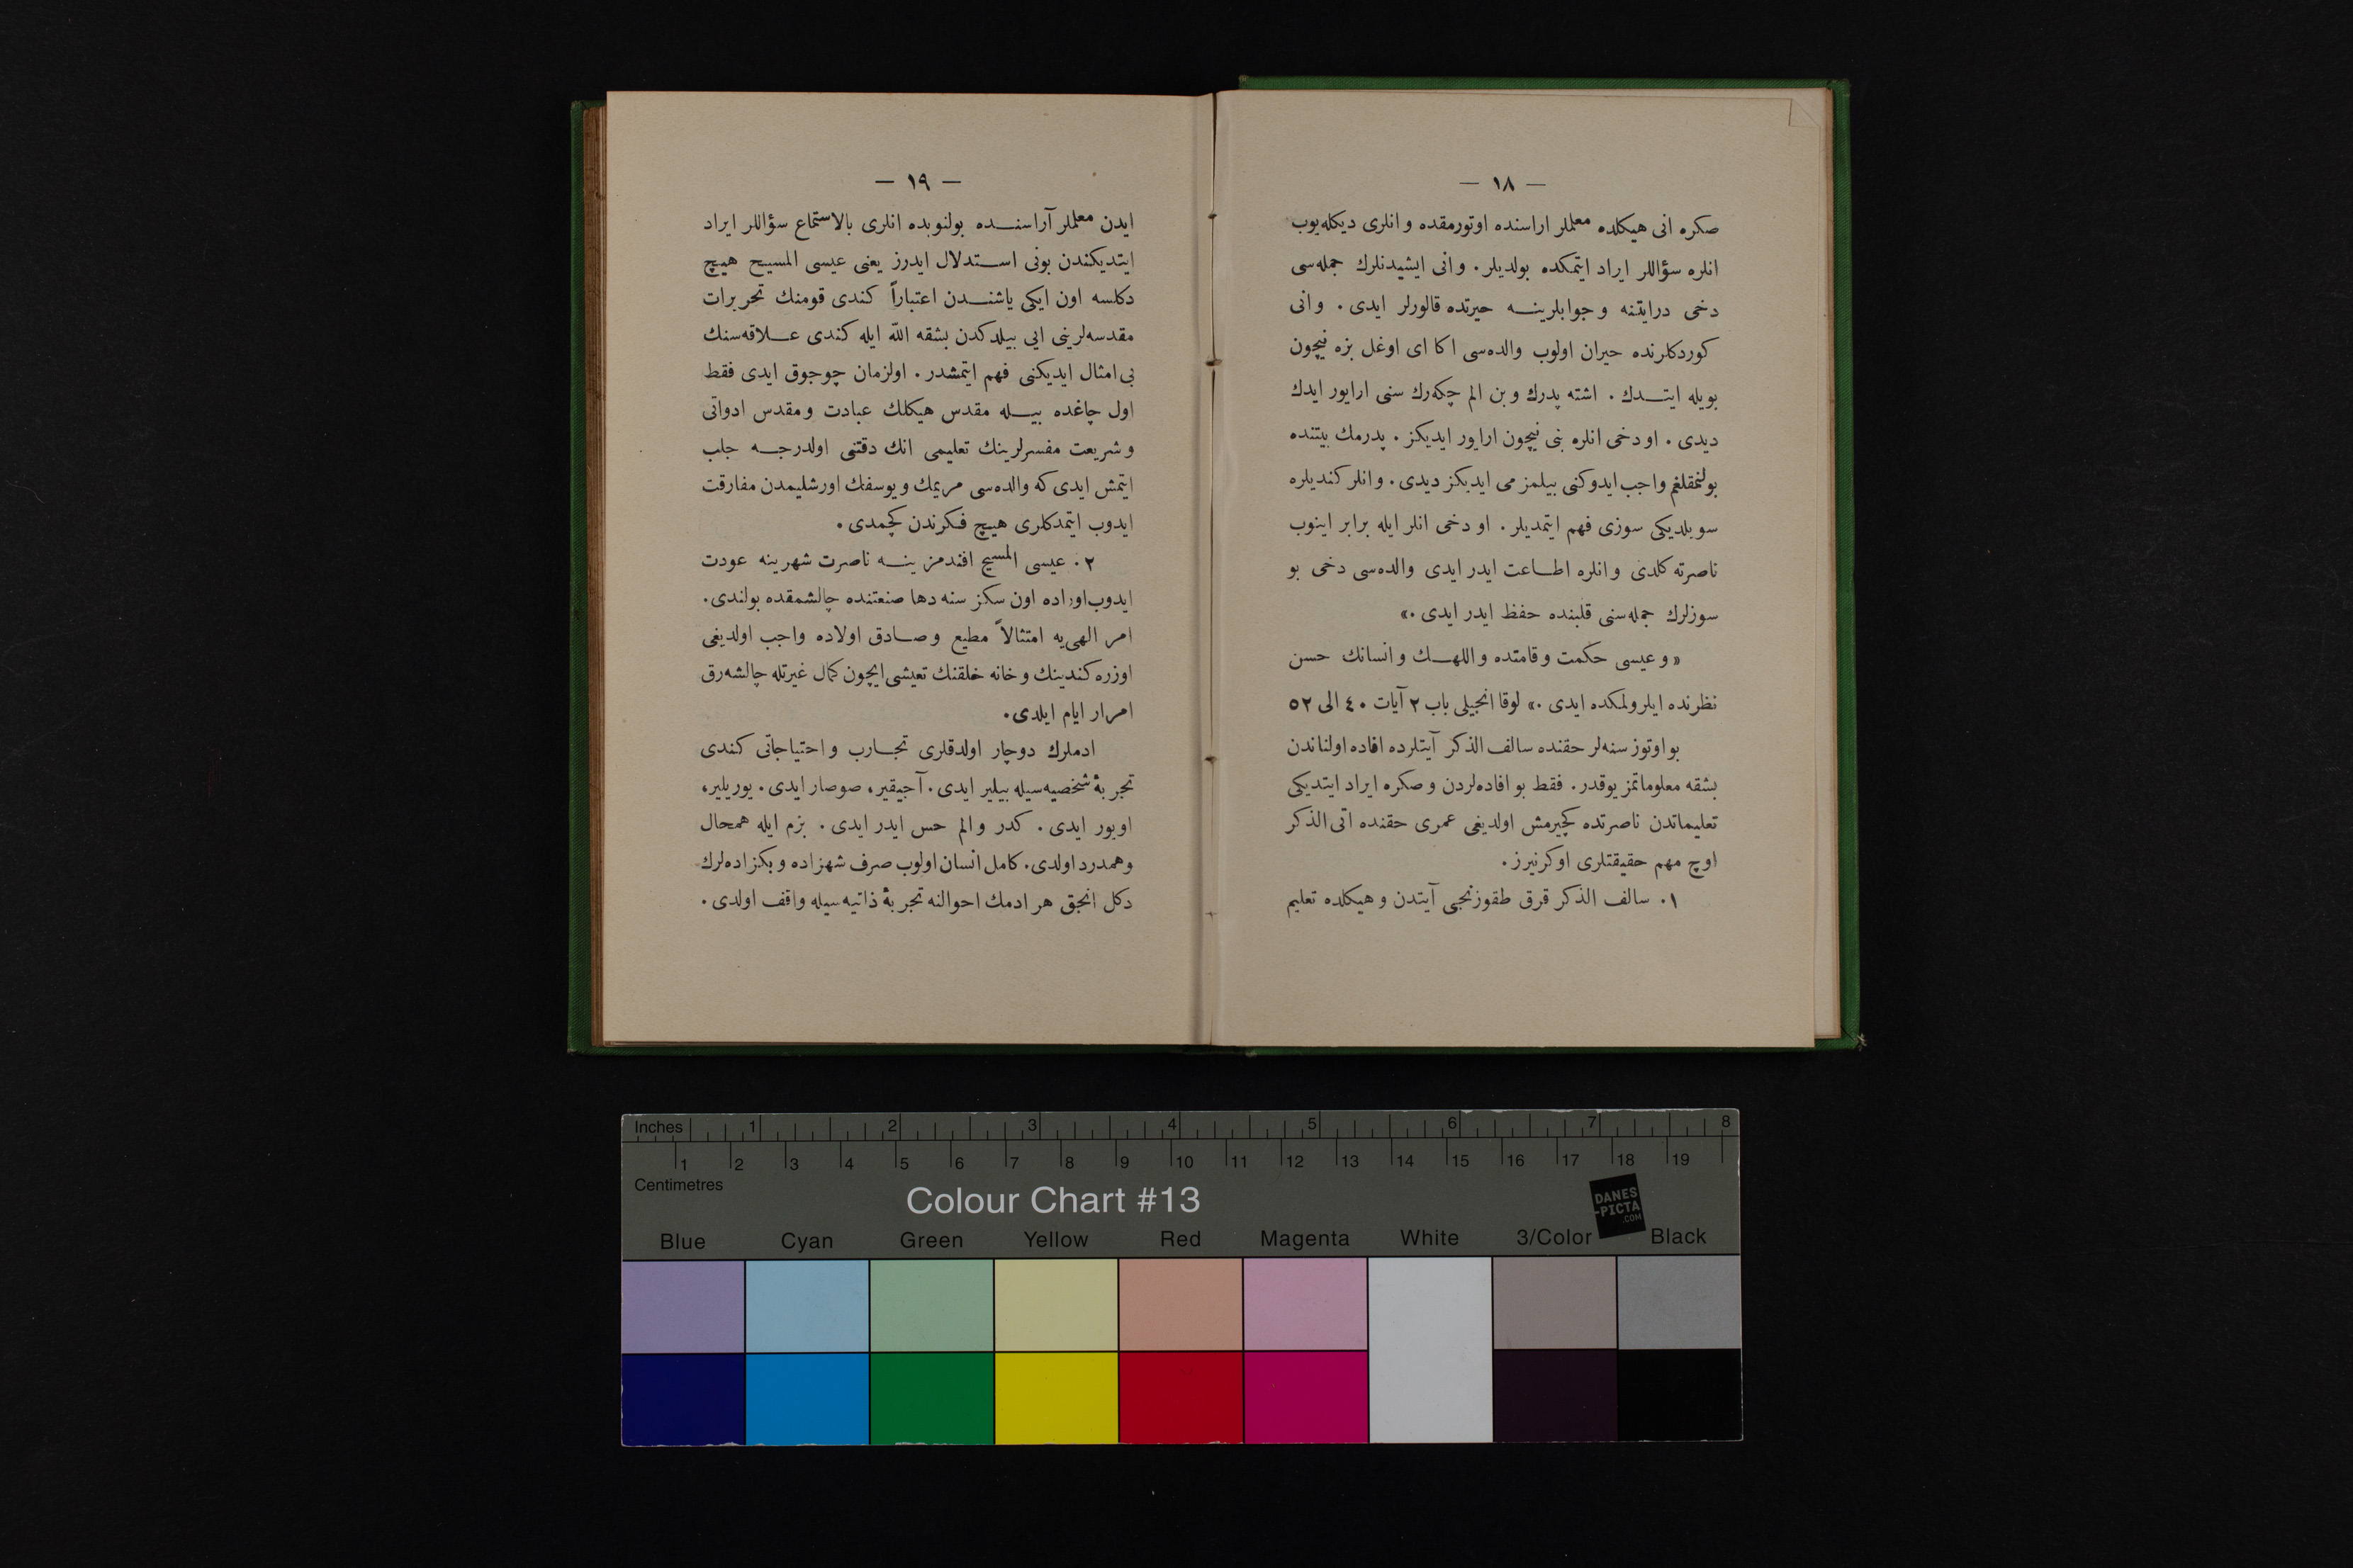 — ١٨ —
صكره انی هيكلده معلملر اراسنده اوتورمقده و انلری ديكله‌يوب
انلره سؤاللر ايراد ايتمكده بولديلر . و انی ايشيدنلرك جمله‌سی
دخی درايتنه و جوابلرينه حيرتده قالورلر ايدی . و انی
كوردكلرنده حيران اولوب والده‌سی اكا ای اوغل بزه نيچون
بويله ايتدك . اشته پدرك و بن الم چكه‌رك سنی ارايور ايدك
ديدی . او دخی انلره بنی نيچون ارايور ايديكز . پدرمك بيتنده
بولنمقلغم واجب ايدوكنی بيلمز می ايديكز ديدی . و انلر كنديلره
سويلديكی سوزی فهم ايتمديلر . او دخی انلر ايله برابر اينوب
ناصرته كلدی و انلره اطاعت ايدر ايدی والده‌سی دخی بو
سوزلرك جمله‌سنی قلبنده حفظ ايدر ايدی .»
« و عيسی حكمت و قامتده و اللهك و انسانك حسن
نظرنده ايلرولمكده ايدی .» لوقا انجيلی باب ٢ آيات ٤٠ الی ٥٢
بو اوتوز سنه‌لر حقنده سالف الذكر آيتلرده افاده اولناندن
بشقه معلوماتمز يوقدر . فقط بو افاده‌لردن و صكره ايراد ايتديكی
تعليماتدن ناصرتده كچيرمش اولديغی عمری حقنده اتی الذكر
اوچ مهم حقيقتلری اوكرنيرز .
١. سالف الذكر قرق طقوزنجی آيتدن و هيكلده تعليم
— ١٩ —
ايدن معلملر آراسنده بولنوبده انلری بالاستماع سؤاللر ايراد
ايتديكندن بونی استدلال ايدرز يعنی عيسی المسيح هيچ
دكلسه اون ايكی ياشندن اعتباراً كندی قومنك تحريرات
مقدسه‌لرينی ايی بيلدكدن بشقه الله ايله كندی علاقه‌سنك
بی امثال ايديكنی فهم ايتمشدر . اولزمان چوجوق ايدی فقط
اول چاغده بيله مقدس هيكلك عبادت و مقدس ادواتی
و شريعت مفسرلرينك تعليمی انك دقتنی اولدرجه جلب
ايتمش ايدی كه والده‌سی مريمك و يوسفك اورشليمدن مفارقت
ايدوب ايتمدكلری هيچ فكرندن كچمدی .
٢. عيسی المسيح افندمز ينه ناصرت شهرينه عودت
ايدوب اوراده اون سكز سنه دها صنعتنده چالشمقده بولندی .
امر الهی‌يه امتثالاً مطيع و صادق اولاده واجب اولديغی
اوزره كندينك و خانه خلقنك تعيشی ايچون كمال غيرتله چالشه‌رق
امرار ايام ايلدی .
ادملرك دوچار اولدقلری تجارب و احتياجاتی كندی
تجربهٔ شخصيه‌سيله بيلير ايدی . آجيقير، صوصار ايدی . يوريلير،
اويور ايدی . كدر و الم حس ايدر ايدی . بزم ايله همحال
و همدرد اولدی . كامل انسان اولوب صرف شهزاده و بكزاده‌لرك
دكل انجق هر ادمك احوالنه تجربهٔ ذاتيه‌سيله واقف اولدی .
Inches 1 2 3 4 5 6 7 8
1 2 3 4 5 6 7 8 9 10 11 12 13 14 15 16 17 18 19
Centimetres
Colour Chart #13
DANES
-PICTA
.COM
Blue Cyan Green Yellow Red Magenta White 3/Color Black